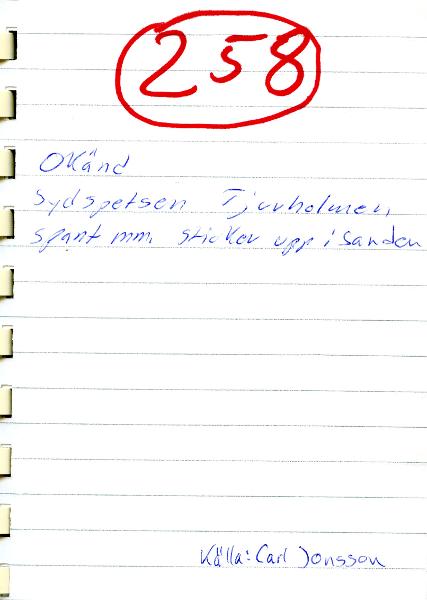 258
Okänd
Sydspetsen Tjurholmen,
spant mm. sticker upp i sanden
Källa: Carl Jonsson